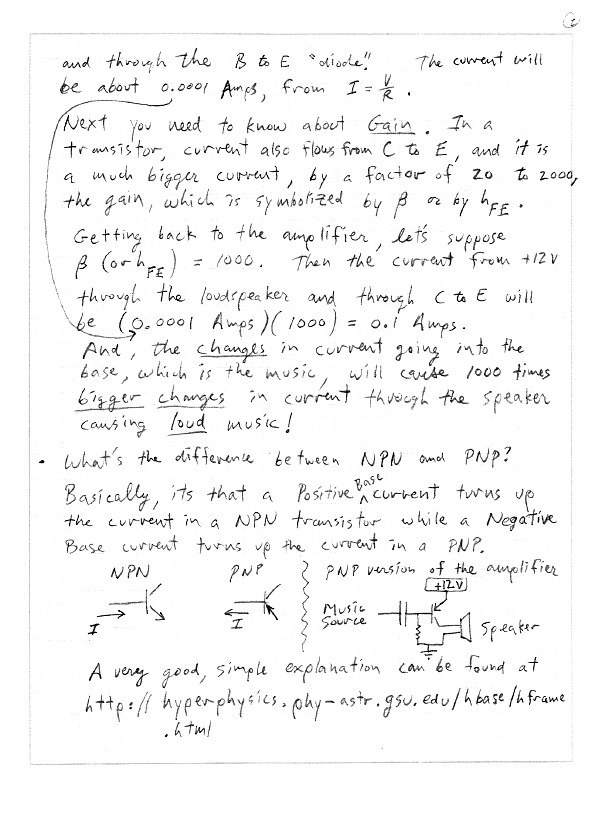 2
and through the B to E "diode". The current will
be about 0.0001 Amps, from I = V/R .
Next you need to know about Gain. In a
transistor, current also flows from C to E, and it is
a much bigger current, by a factor of 20 to 2000,
the gain, which is symbolized by β or by hFE.
Getting back to the amplifier, let's suppose
β (or hFE) = 1000. Then the current from +12V
through the loudspeaker and through C to E will
be (0.0001 Amps)(1000) = 0.1 Amps.
And, the changes in current going into the
base, which is the music, will cause 1000 times
bigger changes in current through the speaker
causing loud music!
• What's the difference between NPN and PNP?
Basically, its that a Positive Base current turns up
the current in a NPN transistor while a Negative
Base current turns up the current in a PNP.
NPN PNP PNP version of the amplifier
+12V
Music
Source
I I Speaker
A very good, simple explanation can be found at
http://hyperphysics.phy-astr.gsu.edu/hbase/hframe
.html